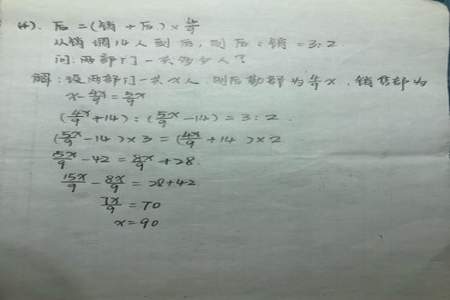 (4). 后 = (销 + 后) × 4/9
从销调14人到后, 则后:销 = 3:2
问:两部门一共多少人?
解: 设两部门一共x人 则后勤部为 4/9 x, 销售部为
x - 4x/9 = 5x/9
(4x/9 + 14) : (5x/9 - 14) = 3 : 2.
(5x/9 - 14) × 3 = (4x/9 + 14) × 2
15x/9 - 42 = 8x/9 + 28.
15x/9 - 8x/9 = 28 + 42
7x/9 = 70
x = 90